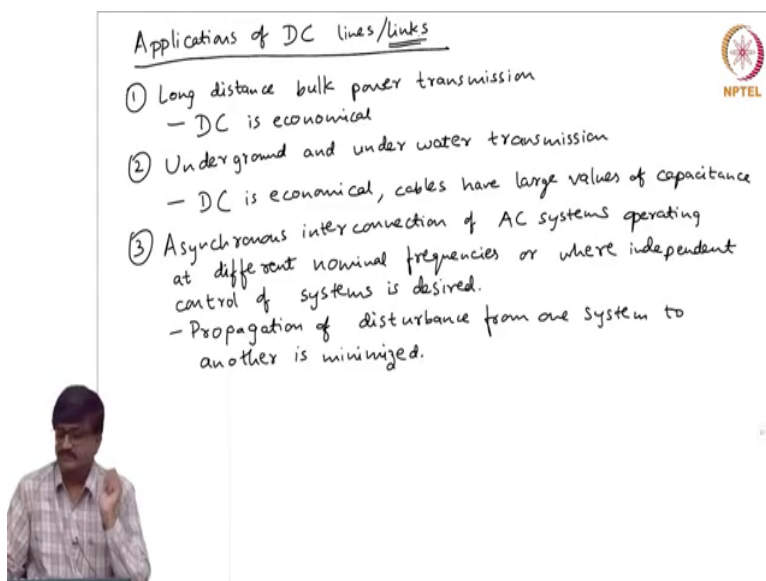 Applications of DC lines/links
① Long distance bulk power transmission
– DC is economical
② Underground and under water transmission
– DC is economical, cables have large values of capacitance
③ Asynchronous interconnection of AC systems operating
at different nominal frequencies or where independent
control of systems is desired.
– Propagation of disturbance from one system to
another is minimized.
NPTEL